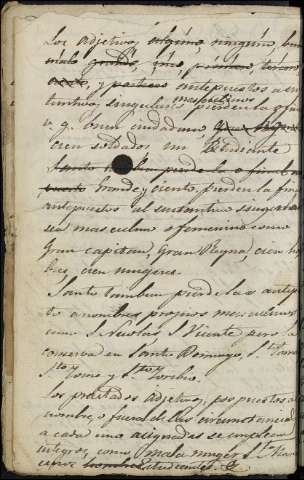 Los adjetivos, alguno, ninguno, bueno
malo
y postrero antepuestos a sus
tantivos singulares masculinos pierden la o final
v. g. buen ciudadano,
cien soldados un Estudiante
Santo
Grande, y ciento, pierden la final
antepuestos al sustantivo singular
sea masculino o femenino como
Gran capitan, Gran Reyna, cien hom
bres, cien mugeres.
Santo tambien pierde la o antepues
to a nombres propios masculinos
como S. Nicolas S. Vicente pero la
conserva en Santo Domingo, Sto. Tomas
Sto. Tome y Sto. Toribio.
Los precitados adjetivos, pospuestos al
nombre, o fuera de las circunstancias
a cada uno asignadas se emplean
integros, como mala muger
hombre Estudiante &